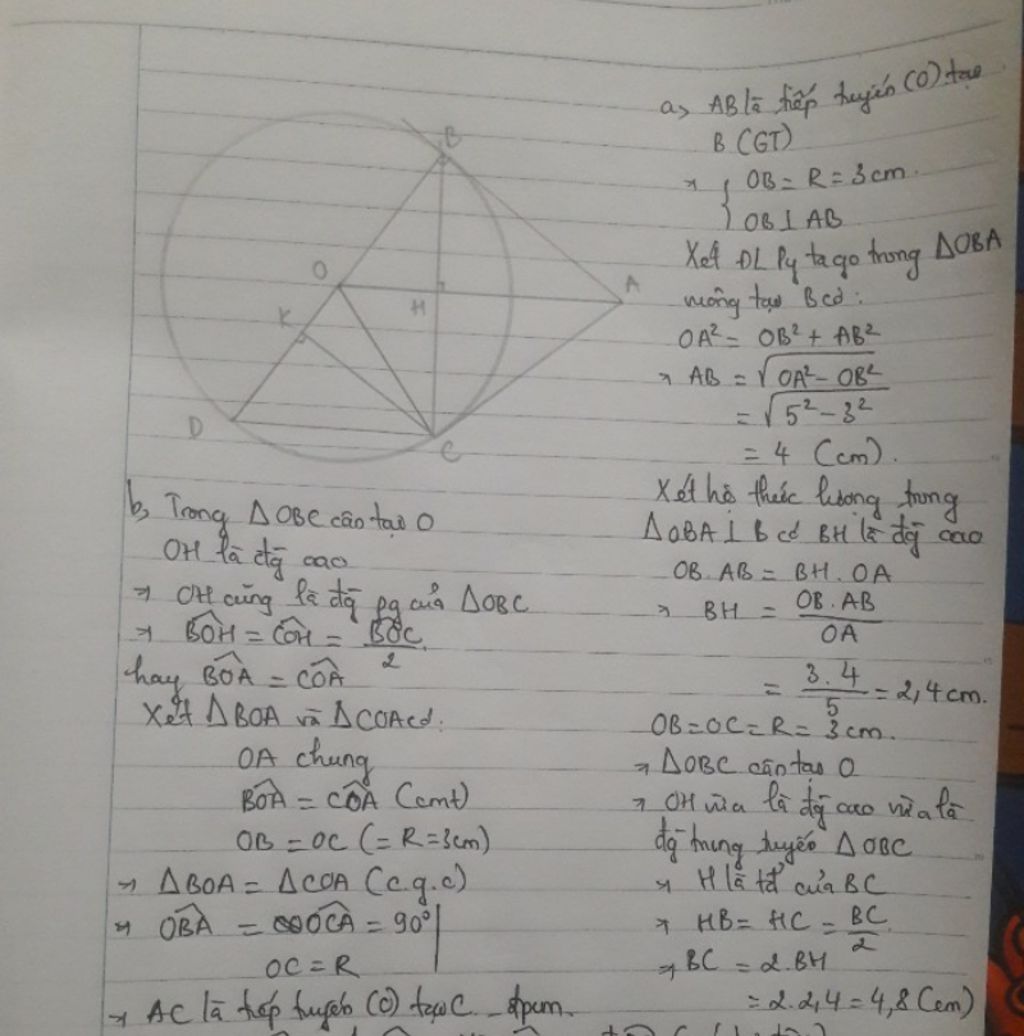 a, AB là tiếp tuyến (O) tại
B (GT)
→ { OB = R = 3cm.
OB ⊥ AB
Xét ĐL Py ta go trong ΔOBA
vuông tại B có:
OA² = OB² + AB²
→ AB = √(OA² - OB²)
= √(5² - 3²)
= 4 (cm).
Xét hệ thức lượng trong
ΔOBA ⊥ B có BH là đg̅ cao
OB. AB = BH. OA
→ BH = OB. AB / OA
= 3. 4 / 5 = 2,4 cm.
OB = OC = R = 3cm.
→ ΔOBC cân tại O
→ OH vừa là đg̅ cao vừa là
đg̅ trung tuyến ΔOBC
→ H là tđ của BC
→ HB = HC = BC / 2
→ BC = 2. BH
= 2. 2,4 = 4,8 (cm)
B
O
H
A
K
D
C
b, Trong ΔOBC cân tại O
OH là đg̅ cao
→ OH cũng là đg̅ pg của ΔOBC
→ BOH^ = COH^ = BOC^ / 2
hay BOA^ = COA^
Xét ΔBOA và ΔCOA có:
OA chung
BOA^ = COA^ (cmt)
OB = OC (= R = 3cm)
→ ΔBOA = ΔCOA (c.g.c)
→ OBA^ = OCA^ = 90°
OC = R
→ AC là tiếp tuyến (O) tại C _ đpcm.